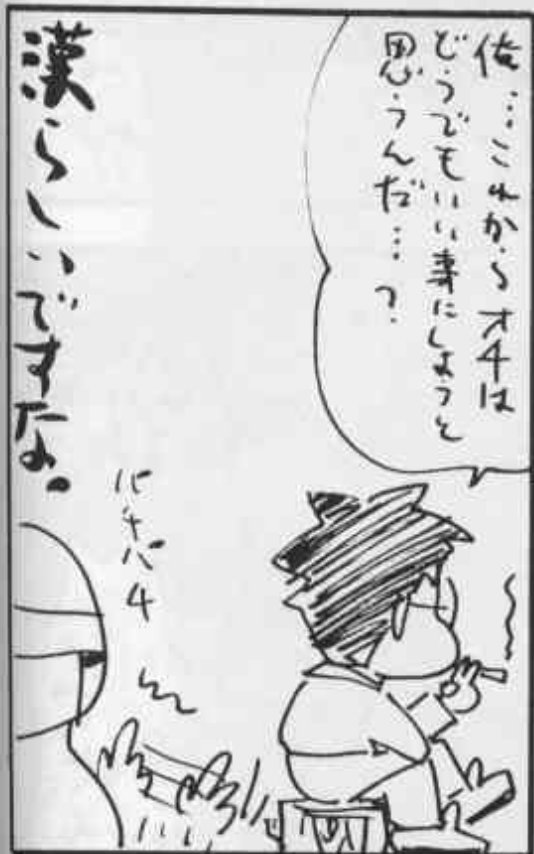 俺…これからオチは
どうでもいい事にしようと
思うんだ…？
漢らしいですなぁ。
パチパチ